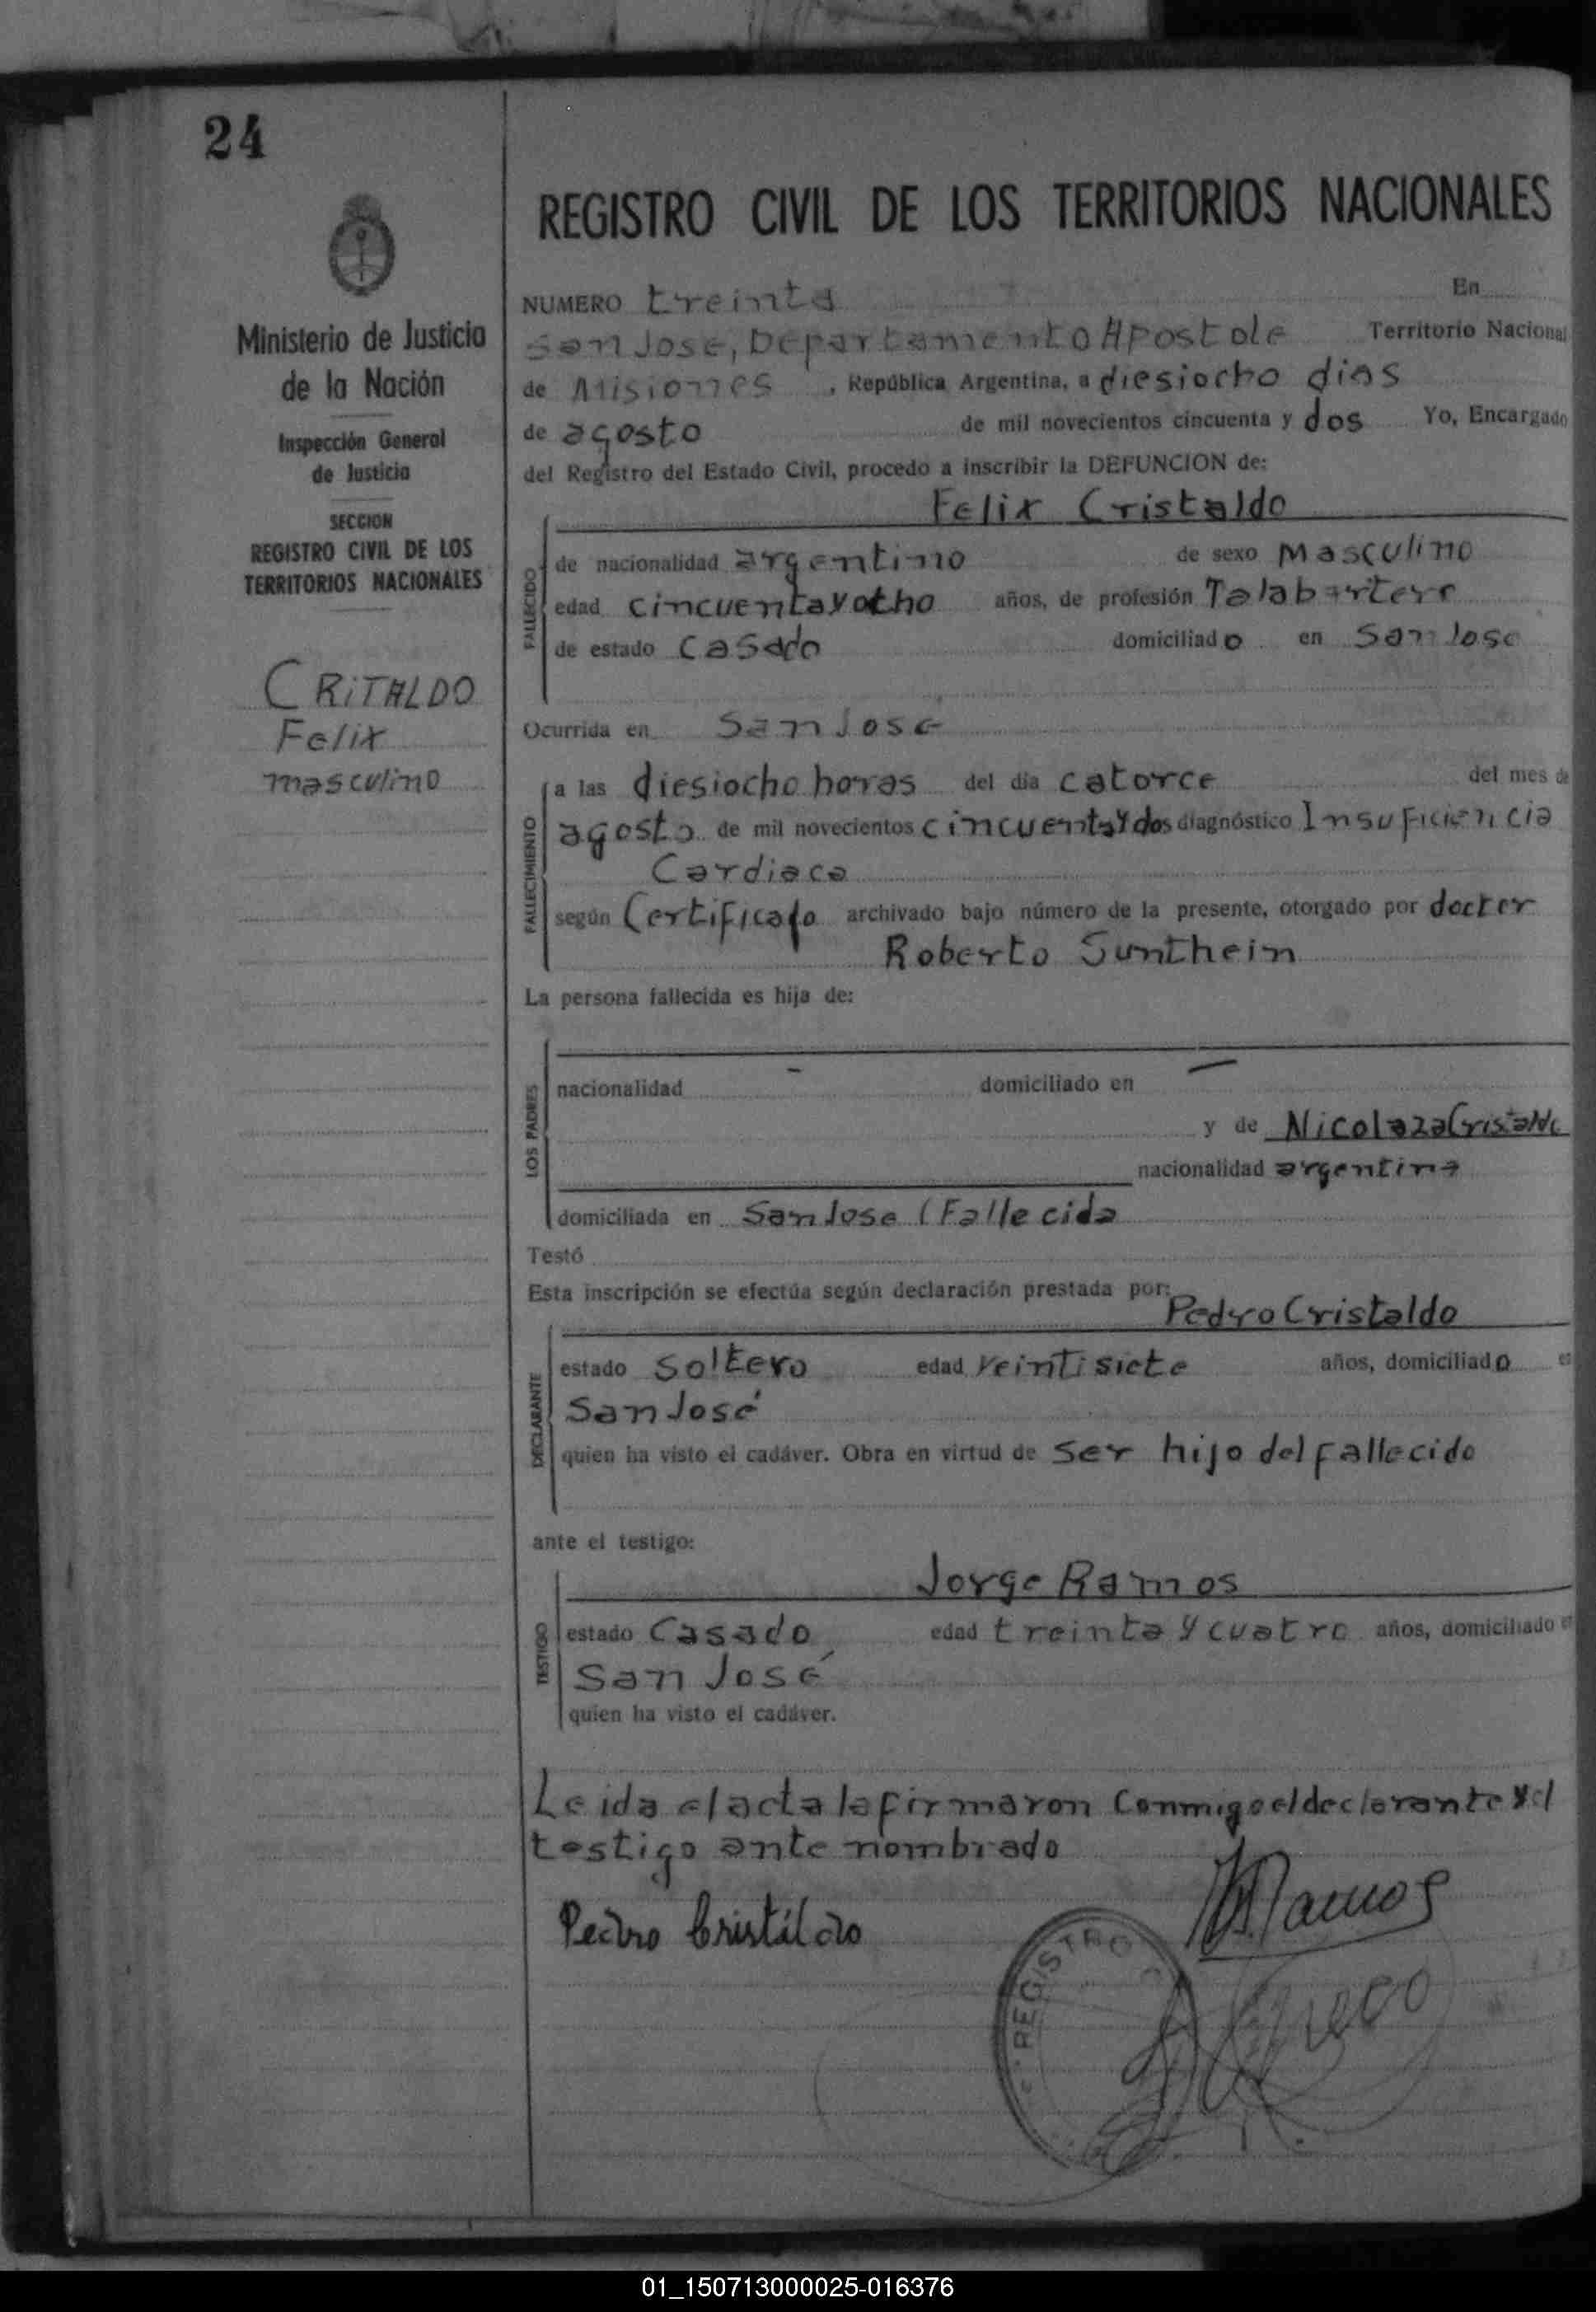 24
REGISTRO CIVIL DE LOS TERRITORIOS NACIONALES
Ministerio de Justicia
de la Nación
Inspección General
de Justicia
SECCION
REGISTRO CIVIL DE LOS
TERRITORIOS NACIONALES
CRiTALDO
Felix
masculino
NUMERO treinta En
San Jose, Departamento Apostole Territorio Nacional
de Misiones, República Argentina, a diesiocho dias
de agosto de mil novecientos cincuenta y dos Yo, Encargado
del Registro del Estado Civil, procedo a inscribir la DEFUNCION de:
Felix Cristaldo
FALLECIDO
de nacionalidad argentino de sexo Masculino
edad cincuentayotho años, de profesión Talabartero
de estado casado domiciliado en San Jose
Ocurrida en San Jose
FALLECIMIENTO
a las diesiocho horas del día catorce del mes de
agosto de mil novecientos cincuentaydos diagnóstico Insuficiencia
Cardiaca
según Certificado archivado bajo número de la presente, otorgado por doctor
Roberto Suntheim
La persona fallecida es hija de:
LOS PADRES
nacionalidad - domiciliado en -
y de Nicolaza Cristaldo
nacionalidad argentina
domiciliada en San Jose (Fallecida
Testó
Esta inscripción se efectúa según declaración prestada por:
Pedro Cristaldo
DECLARANTE
estado Soltero edad veintisiete años, domiciliado en
San José
quien ha visto el cadáver. Obra en virtud de ser hijo del fallecido
ante el testigo:
Jorge Ramos
TESTIGO
estado Casado edad treinta y cuatro años, domiciliado en
San José
quien ha visto el cadáver.
Leida el acta la firmaron conmigo el declarante y el
testigo ante nombrado
Pedro Cristáldo
Ramos
REGISTRO
01_150713000025-016376